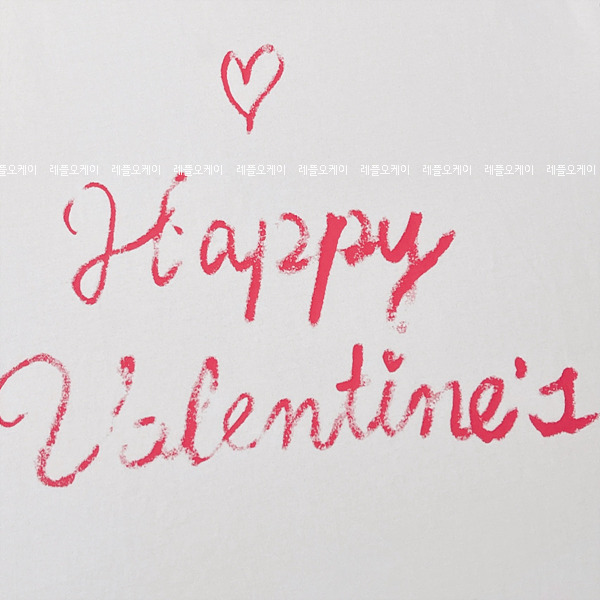 레플오케이 레플오케이 레플오케이 레플오케이 레플오케이 레플오케이 레플오케이 레플오케이 레플오케이 레플오케이
Happy
Valentine's